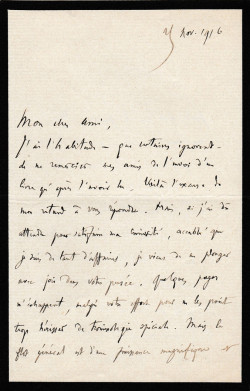 25 Nov. 1916
Mon cher Ami,
J'ai l'habitude — que certains ignorent —
de ne remercier mes amis de l'envoi d'un
livre qu'après l'avoir lu. Voilà l'excuse de
mon retard à vous répondre. Mais, si j'ai dû
attendre pour satisfaire ma curiosité, accablé que
je suis de tant d'affaires, je viens de me plonger
avec joie dans votre pensée. Quelques pages
m'échappent, malgré votre effort pour ne les point
trop hérisser de terminologie spéciale. Mais le
général est d'une puissance magnifique et